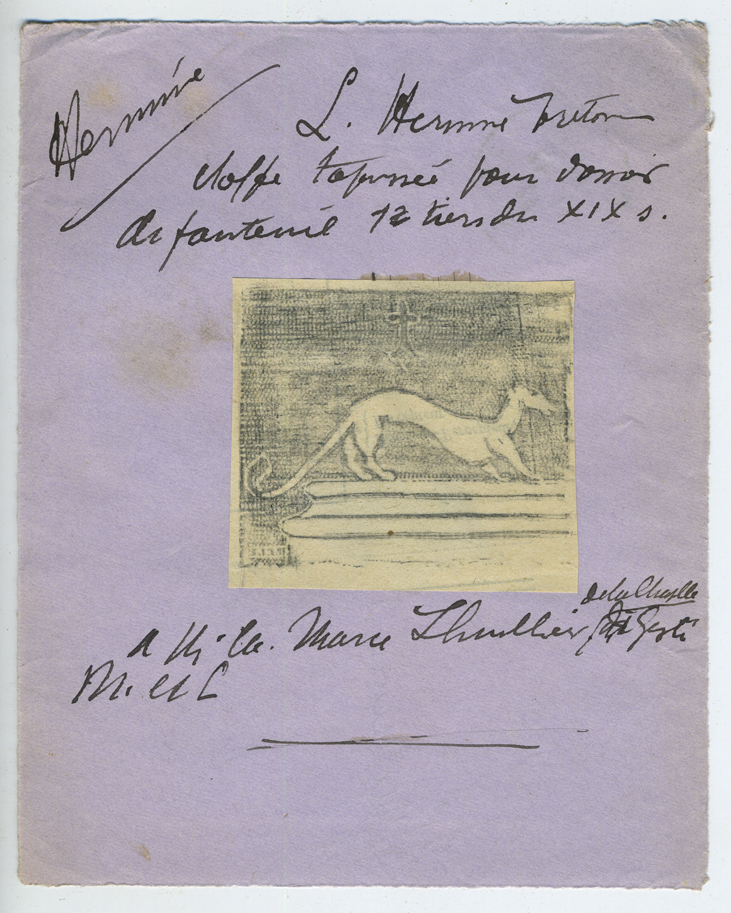 Hermine
L. Hermine breton
étoffe tapissée pour dossier
de fauteuil 12 tiers du XIX s.
de la Chapelle
a Marie Lhuillier
M. et L